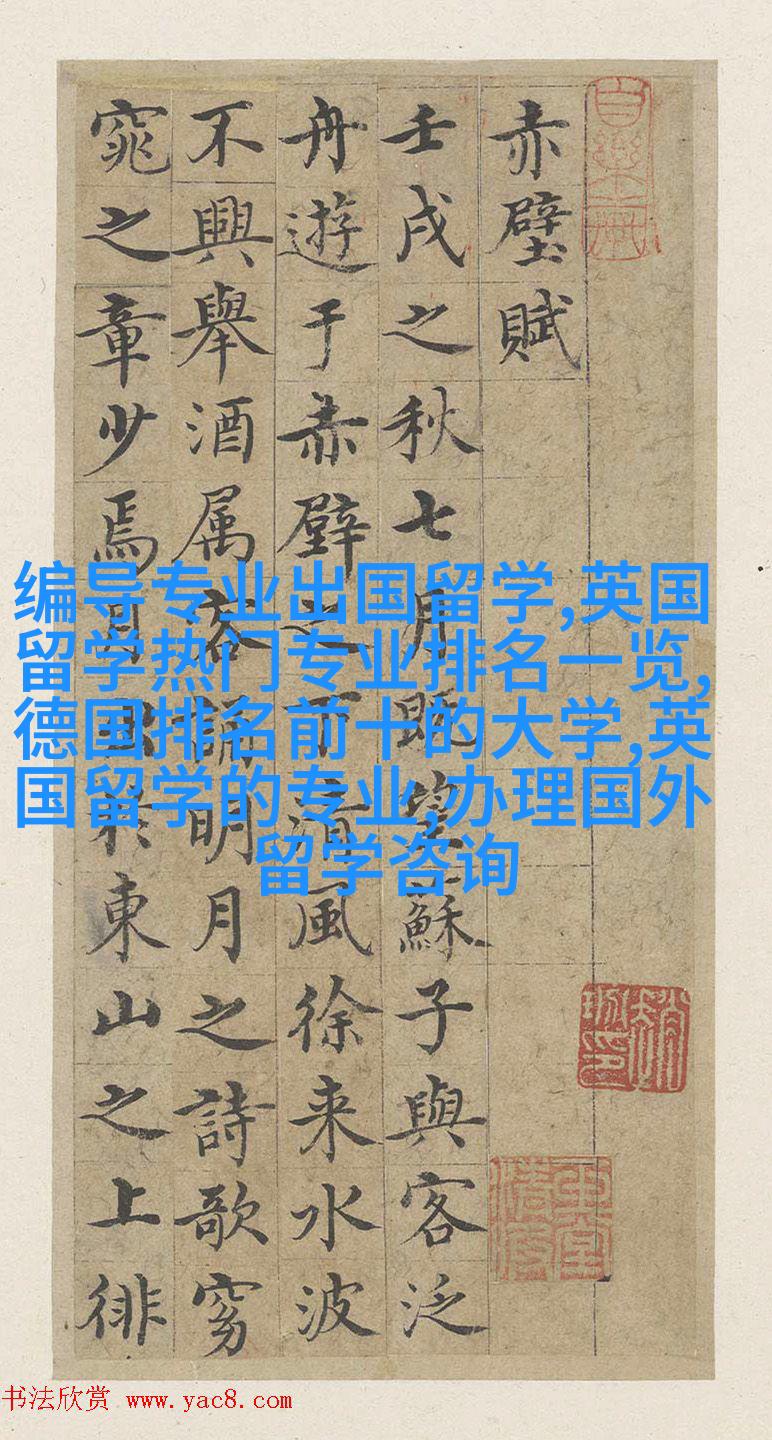 赤壁賦
壬戌之秋七月既望蘇子與客泛
舟遊于赤壁之下清風徐来水波
不興舉酒属客誦明月之詩歌窈
窕之章少焉月出於東山之上徘
编导专业出国留学,英国
留学热门专业排名一览,
德国排名前十的大学,英
国留学的专业,办理国外
留学咨询
书法欣赏 www.yac8.com